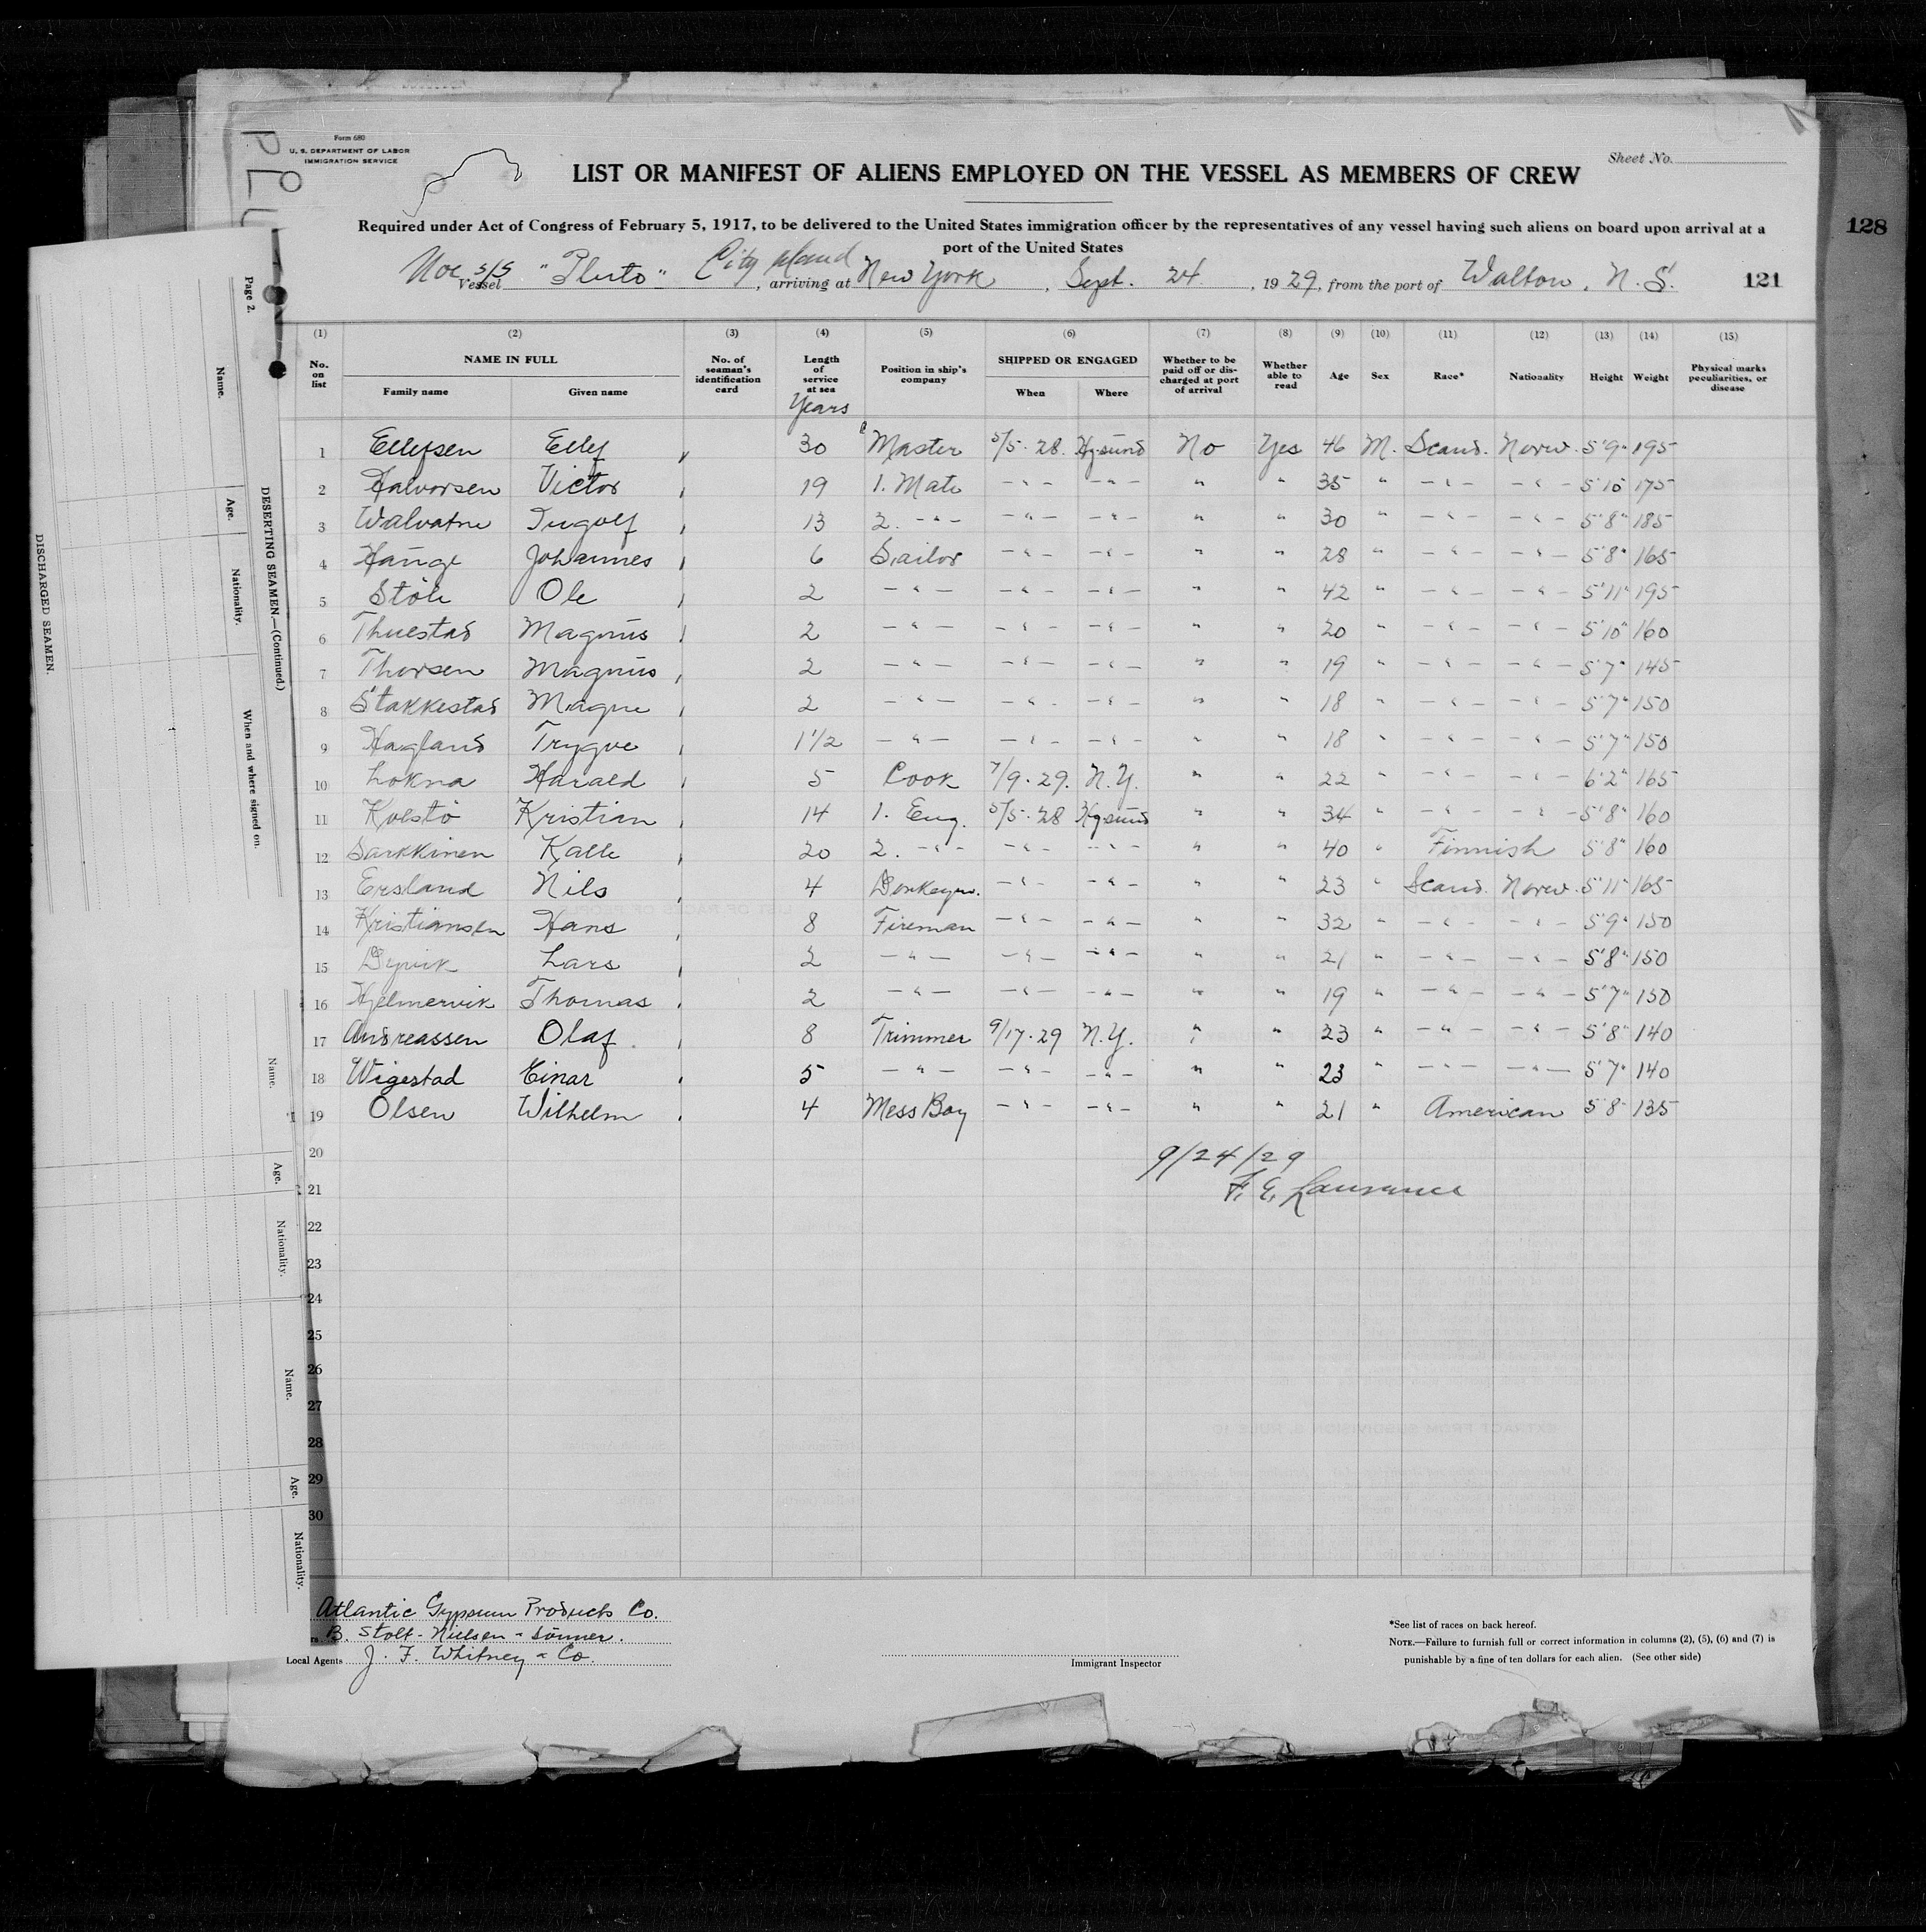 PLU
Form 680
U. S. DEPARTMENT OF LABOR
IMMIGRATION SERVICE
Sheet No.
LIST OR MANIFEST OF ALIENS EMPLOYED ON THE VESSEL AS MEMBERS OF CREW
Required under Act of Congress of February 5, 1917, to be delivered to the United States immigration officer by the representatives of any vessel having such aliens on board upon arrival at a
port of the United States
128
Vessel Nor. S/S "Pluto" City Island, arriving at New York, Sept. 24, 1929, from the port of Walton, N.S. 121
(1) (2) (3) (4) (5) (6) (7) (8) (9) (10) (11) (12) (13) (14) (15)
No. on list NAME IN FULL Family name Given name No. of seaman's identification card Length of service at sea Years Position in ship's company SHIPPED OR ENGAGED When Where Whether to be paid off or discharged at port of arrival Whether able to read Age Sex Race* Nationality Height Weight Physical marks peculiarities, or disease
1 Ellefsen Ellef 30 Master 5/5-28. Hgsund No Yes 46 M. Scand. Norw. 5'9" 195
2 Halvorsen Victor 19 1. Mate -"- -"- " " 35 " -"- -"- 5'10 175
3 Walvatne Ingolf 13 2. -"- -"- -"- " " 30 " -"- -"- 5'8" 185
4 Hauge Johannes 6 Sailor -"- -"- " " 28 " -"- -"- 5'8" 165
5 Stöle Ole 2 -"- -"- -"- " " 42 " -"- -"- 5'11" 195
6 Thuestad Magnus 2 -"- -"- -"- " " 20 " -"- -"- 5'10" 160
7 Thorsen Magnus 2 -"- -"- -"- " " 19 " -"- -"- 5'7" 145
8 Stakkestad Magne 2 -"- -"- -"- " " 18 " -"- -"- 5'7" 150
9 Hagland Trygve 1 1/2 -"- -"- -"- " " 18 " -"- -"- 5'7" 150
10 Lokna Harald 5 Cook 7/9-29. N.Y. " " 22 " -"- -"- 6'2" 165
11 Kolstö Kristian 14 1. Eng. 5/5-28 Hgsund " " 34 " -"- -"- 5'8" 160
12 Sarkkinen Kalle 20 2. -"- -"- -"- " " 40 " Finnish 5'8" 160
13 Ersland Nils 4 Donkeym. -"- -"- " " 23 " Scand. Norw. 5'11" 165
14 Kristiansen Hans 8 Fireman -"- -"- " " 32 " -"- -"- 5'9" 150
15 Dyvik Lars 2 -"- -"- -"- " " 21 " -"- -"- 5'8" 150
16 Hjelmervik Thomas 2 -"- -"- -"- " " 19 " -"- -"- 5'7" 150
17 Andreassen Olaf 8 Trimmer 9/17-29 N.Y. " " 23 " -"- -"- 5'8" 140
18 Wigestad Einar 5 -"- -"- -"- " " 23 " -"- -"- 5'7" 140
19 Olsen Wilhelm 4 Mess Boy -"- -"- " " 21 " American 5'8 135
20
9/24/29
21
F. E. Laurence
22
23
24
25
26
27
28
29
30
Atlantic Gypsum Products Co.
B. Stolt-Nielsen & Sönner.
Local Agents J. F. Whitney & Co.
Immigrant Inspector
*See list of races on back hereof.
NOTE.—Failure to furnish full or correct information in columns (2), (5), (6) and (7) is
punishable by a fine of ten dollars for each alien. (See other side)
Page 2.
DESERTING SEAMEN.—(Continued.)
Name. Age. Nationality. When and where signed on.
DISCHARGED SEAMEN.
Name. Age. Nationality.
Name. Age. Nationality.